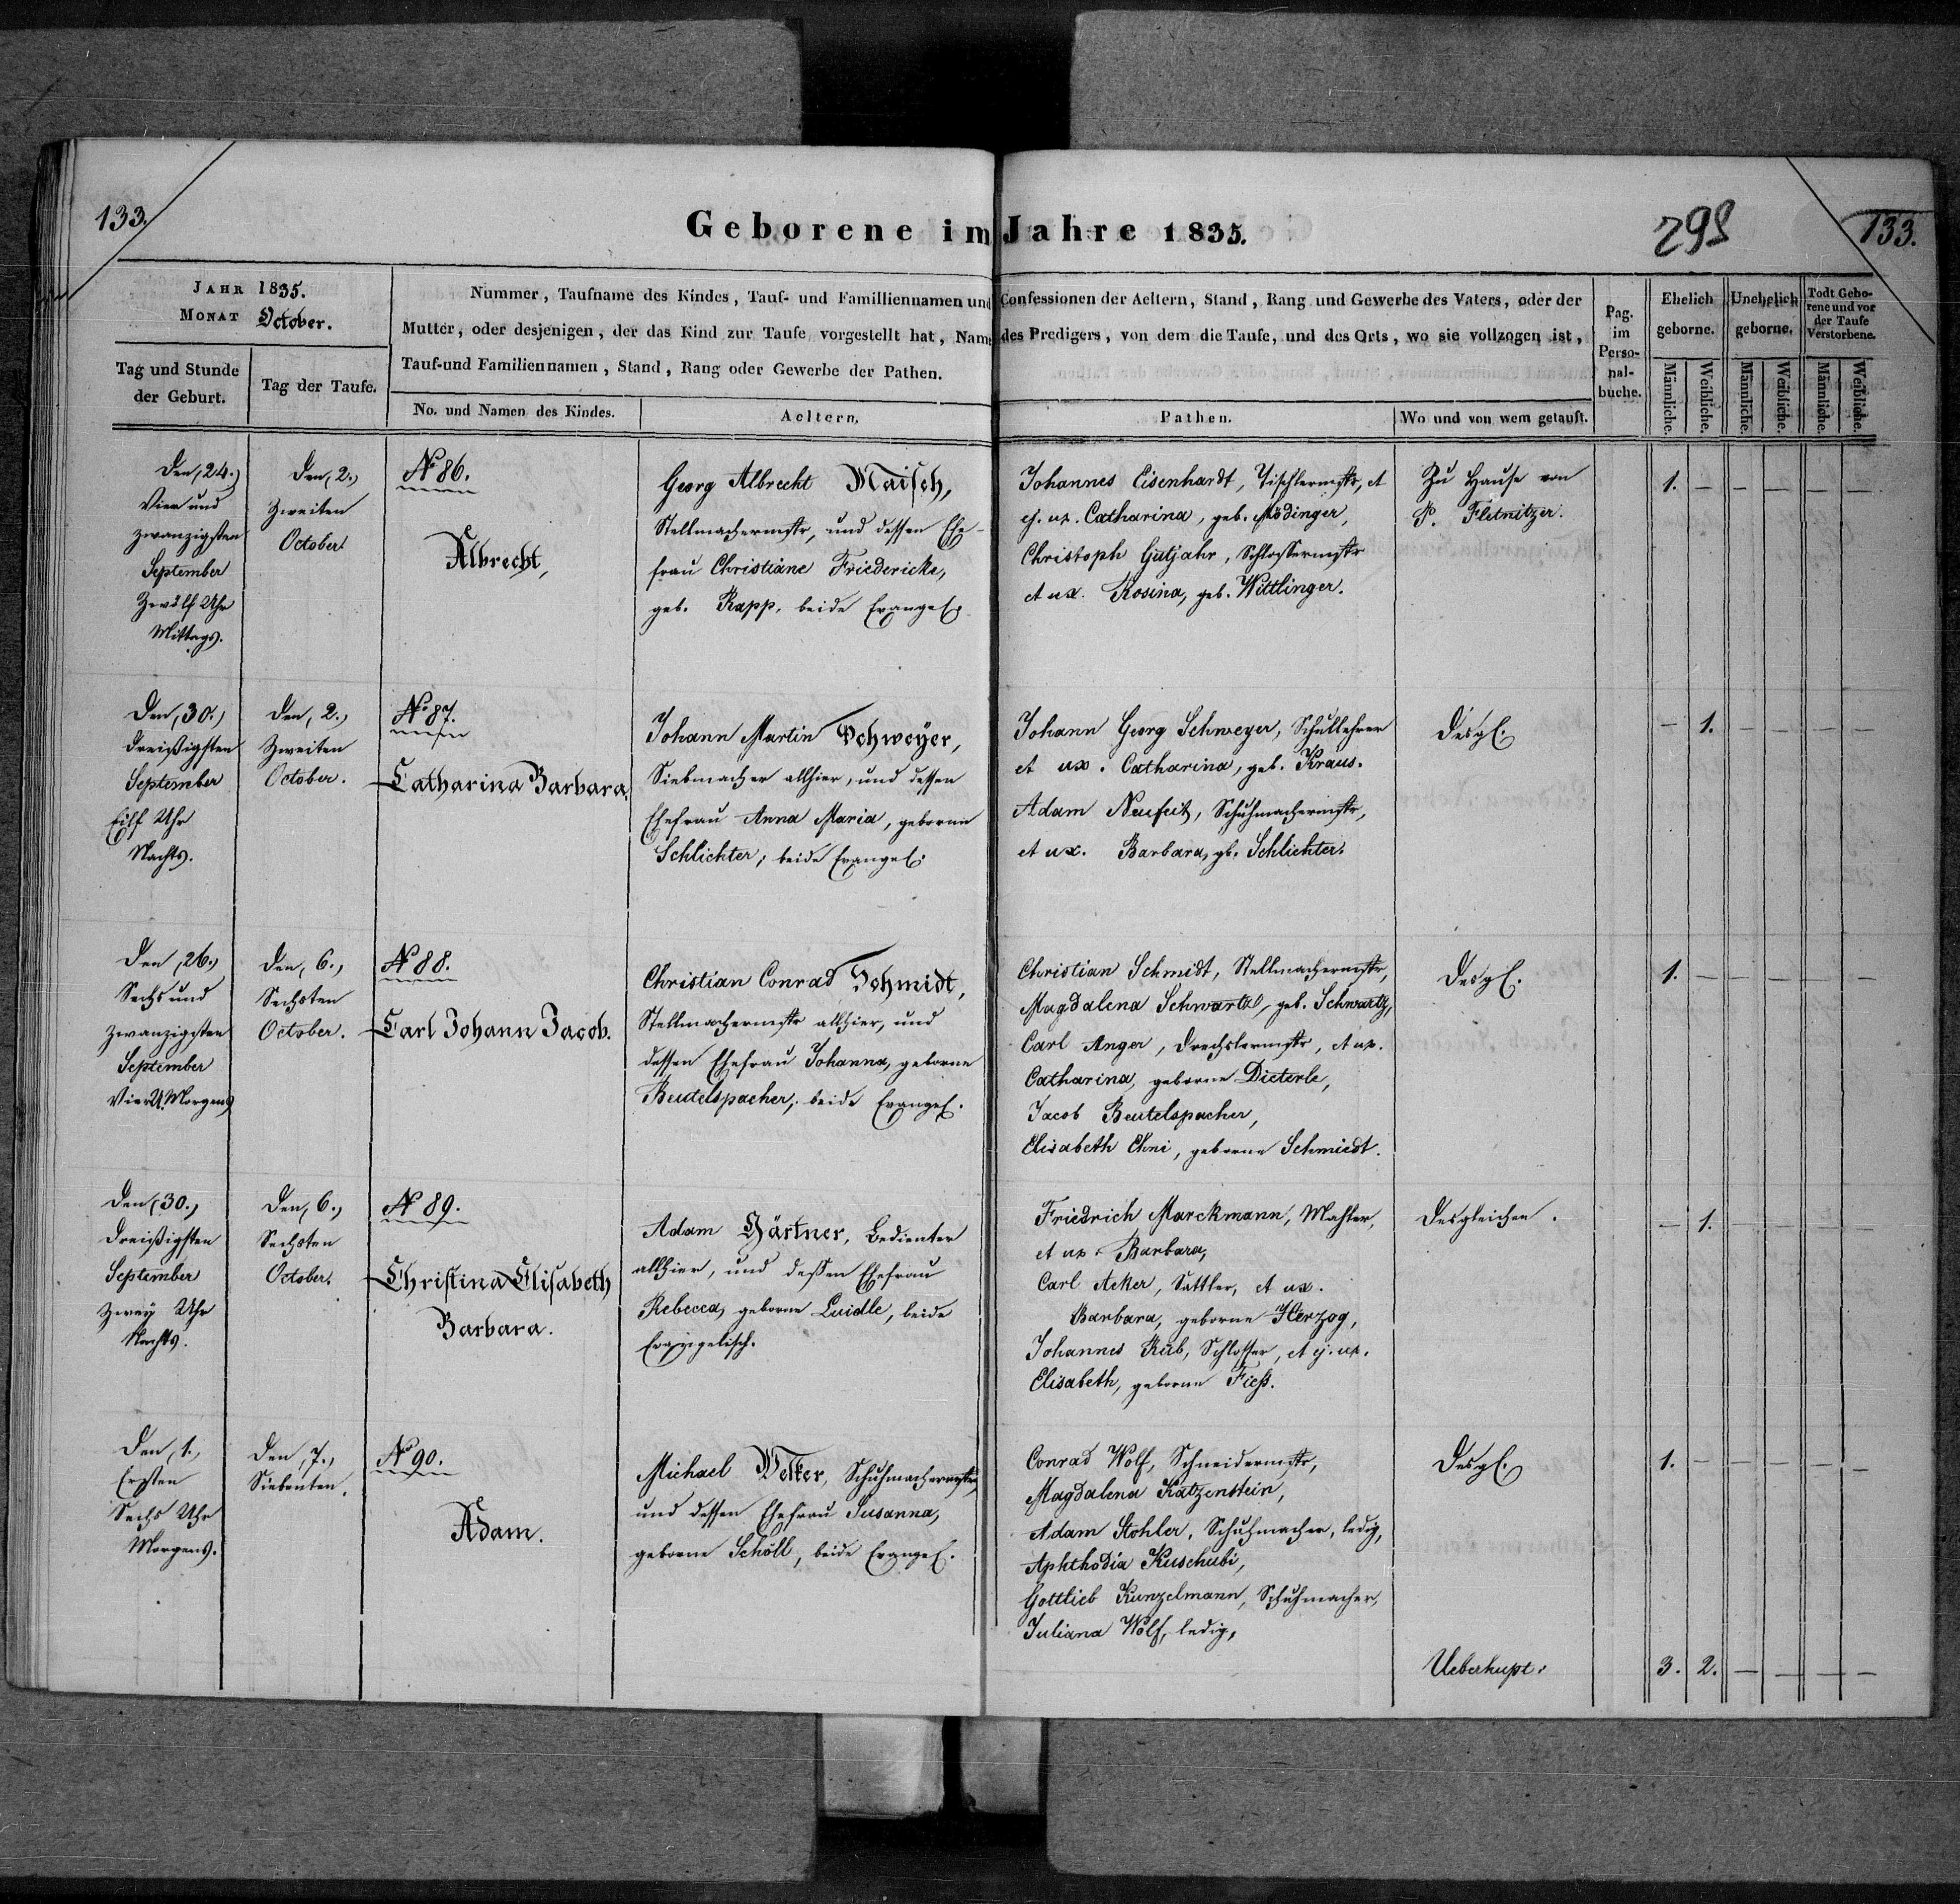 133.
Geborene im Jahre 1835.
298
133.
JAHR 1835.
MONAT October.
Tag und Stunde
der Geburt.
Tag der Taufe.
Nummer, Taufname des Kindes, Tauf- und Familliennamen und Confessionen der Aeltern, Stand, Rang und Gewerbe des Vaters, oder der
Mutter, oder desjenigen, der das Kind zur Taufe vorgestellt hat, Name des Predigers, von dem die Taufe, und des Orts, wo sie vollzogen ist,
Tauf-und Familiennamen, Stand, Rang oder Gewerbe der Pathen.
No. und Namen des Kindes.
Aeltern.
Pathen.
Wo und von wem getauft.
Pag.
im
Perso-
nal-
buche.
Ehelich
geborne.
Unehelich
geborne.
Todt Gebo-
rene und vor
der Taufe
Verstorbene.
Männliche.
Weibliche.
Männliche.
Weibliche.
Männliche.
Weibliche.
Den, 24.,
Vier und
zwanzigsten
September
Zwölf Uhr
Mittags.
Den, 2.,
Zweiten
October.
No 86.
Albrecht,
Georg Albrecht Maisch,
Stellmachermstr, und dessen Ehe-
frau Christiane Friedericke,
geb. Rapp, beide Evangel.
Johannes Eisenhardt, Tischlermstr, et
ej. ux. Catharina, geb. Mödinger,
Christoph Gutjahr, Schlossermstr
et ux. Rosina, geb. Wittlinger.
Zu Hause von
P. Fletnitzer.
1. — — — — —
Den, 30.,
Dreißigsten
September
Eilf Uhr
Nachts.
Den, 2.,
Zweiten
October.
No 87.
Catharina Barbara.
Johann Martin Schweyer,
Siebmacher allhier, und dessen
Ehefrau Anna Maria, geborne
Schlichter, beide Evangel.
Johann Georg Schweyer, Schullehrer
et ux. Catharina, geb. Kraus.
Adam Neufeit, Schuhmachermstr,
et ux. Barbara, gb. Schlichter.
Desgl.
— 1. — — — —
Den, 26.,
Sechs und
zwanzigsten
September
Vier U. Morgens
Den, 6.,
Sechsten
October.
No 88.
Carl Johann Jacob.
Christian Conrad Schmidt,
Stellmachermstr allhier, und
dessen Ehefrau Johanna, geborne
Beutelspacher, beide Evangel.
Christian Schmidt, Stellmachermstr,
Magdalena Schwartz, geb. Schwartz,
Carl Anger, Drechslermstr, et ux.
Catharina, geborne Dieterle,
Jacob Beutelspacher,
Elisabeth Ehni, geborne Schmiedt.
Desgl.
1. — — — — —
Den, 30.,
Dreißigsten
September
Zwey Uhr
Nachts.
Den, 6.,
Sechsten
October.
No 89.
Christina Elisabeth
Barbara.
Adam Gärtner, Bedienter
allhier, und dessen Ehefrau
Rebecca, geborne Luidle, beide
Evangelisch.
Friedrich Marckmann, Mahler,
et ux. Barbara,
Carl Acker, Sattler, et ux.
Barbara, geborne Herzog,
Johannes Rüb, Schlosser, et ej. ux.
Elisabeth, geborne Fieß.
Desgleichen.
— 1. — — — —
Den, 1.,
Ersten
Sechs Uhr
Morgens.
Den, 7.,
Siebenten.
No 90.
Adam.
Michael Welker, Schuhmachermstr,
und dessen Ehefrau Susanna,
geborne Schöll, beide Evangel.
Conrad Wolf, Schneidermstr,
Magdalena Katzenstein,
Adam Stohler, Schuhmacher, ledig,
Aphthodia Kuschubi,
Gottlieb Kunzelmann, Schuhmacher,
Juliana Wolf, ledig,
Desgl.
1. — — — — —
Ueberhupt.
3. 2. — — — —